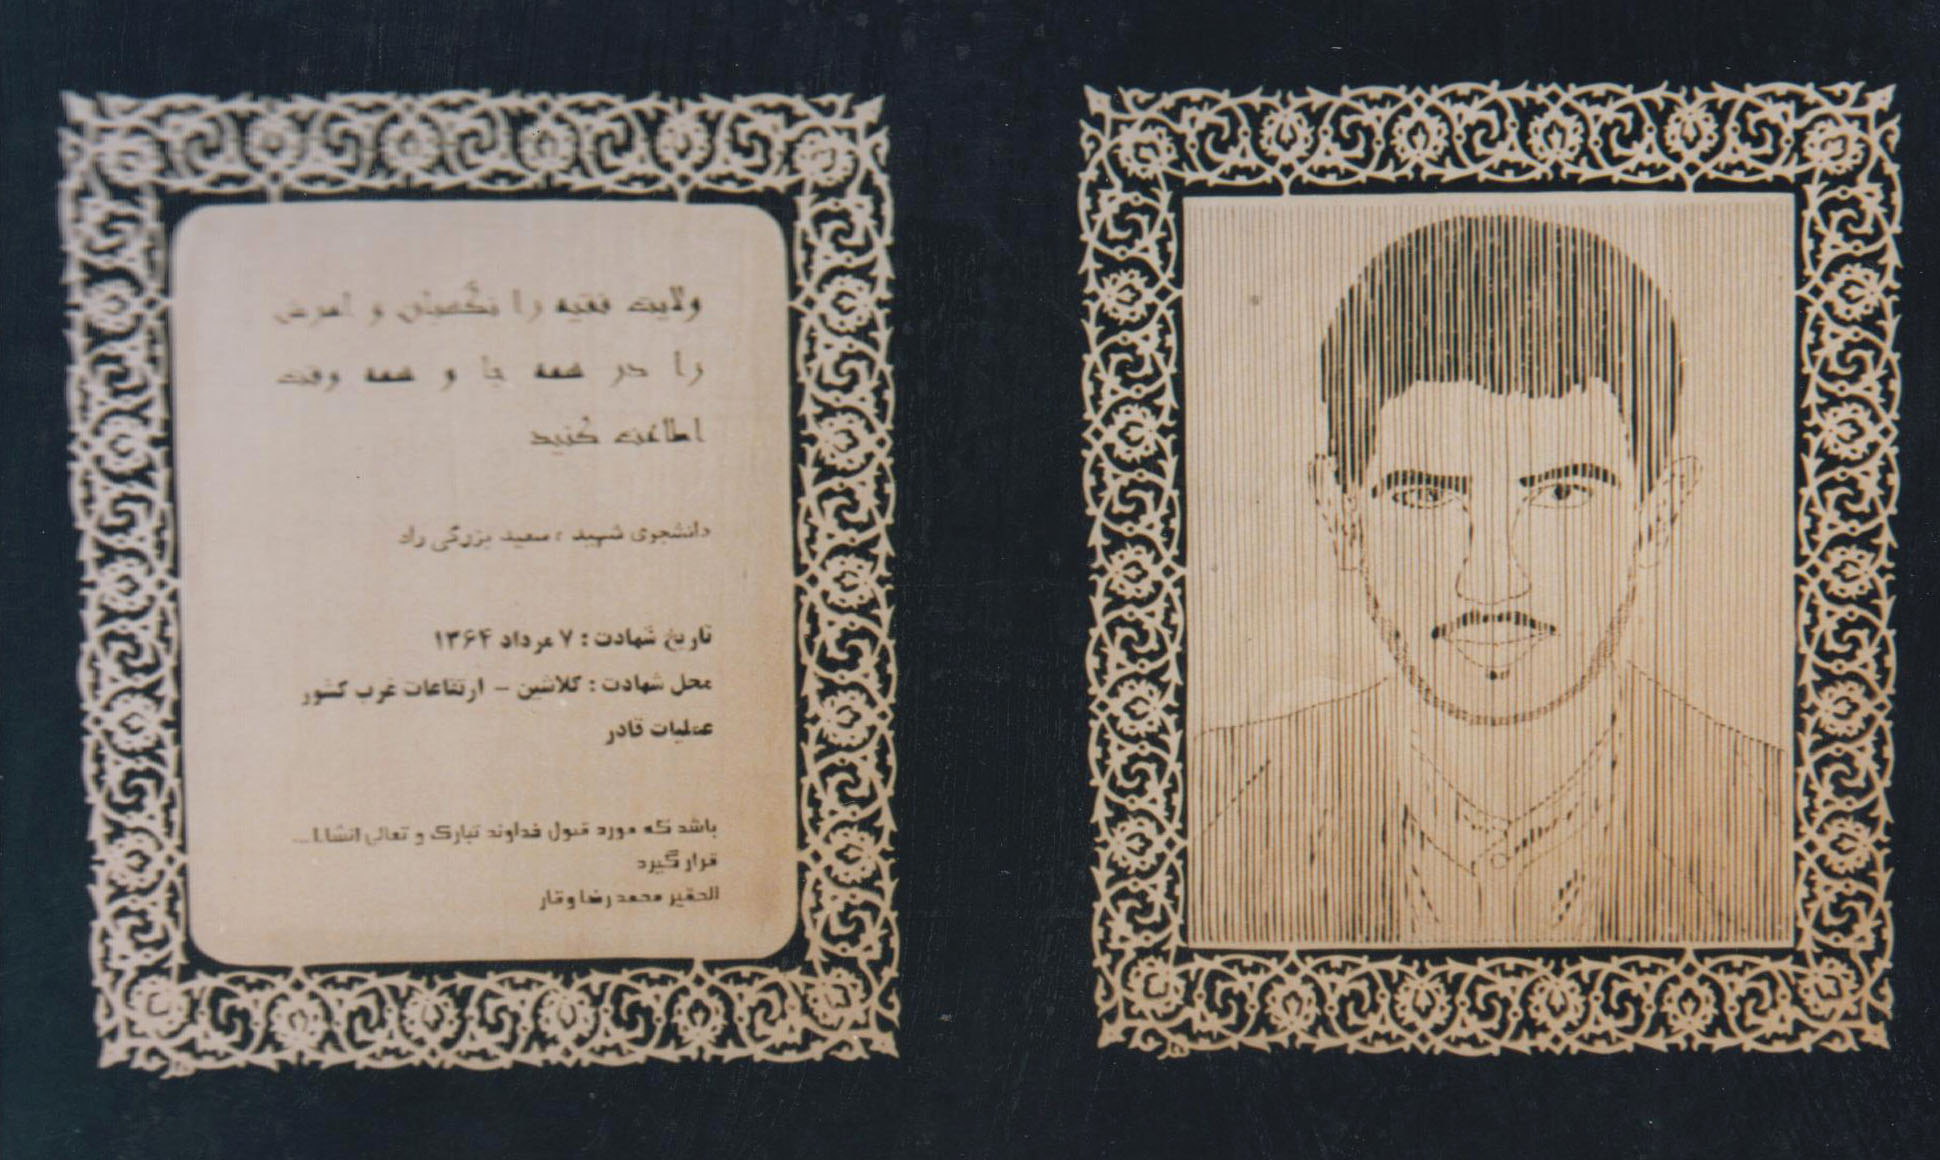 ولایت فقیه را نگهبان و امرش
را در همه جا و همه وقت
اطاعت کنید
دانشجوی شهید : سعید بزرگی راد
تاریخ شهادت : ۷ مرداد ۱۳۶۴
محل شهادت : کلاشین - ارتفاعات غرب کشور
عملیات قادر
باشد که مورد قبول خداوند تبارک و تعالی انشاا...
قرار گیرد
الحقیر محمد رضا وقار